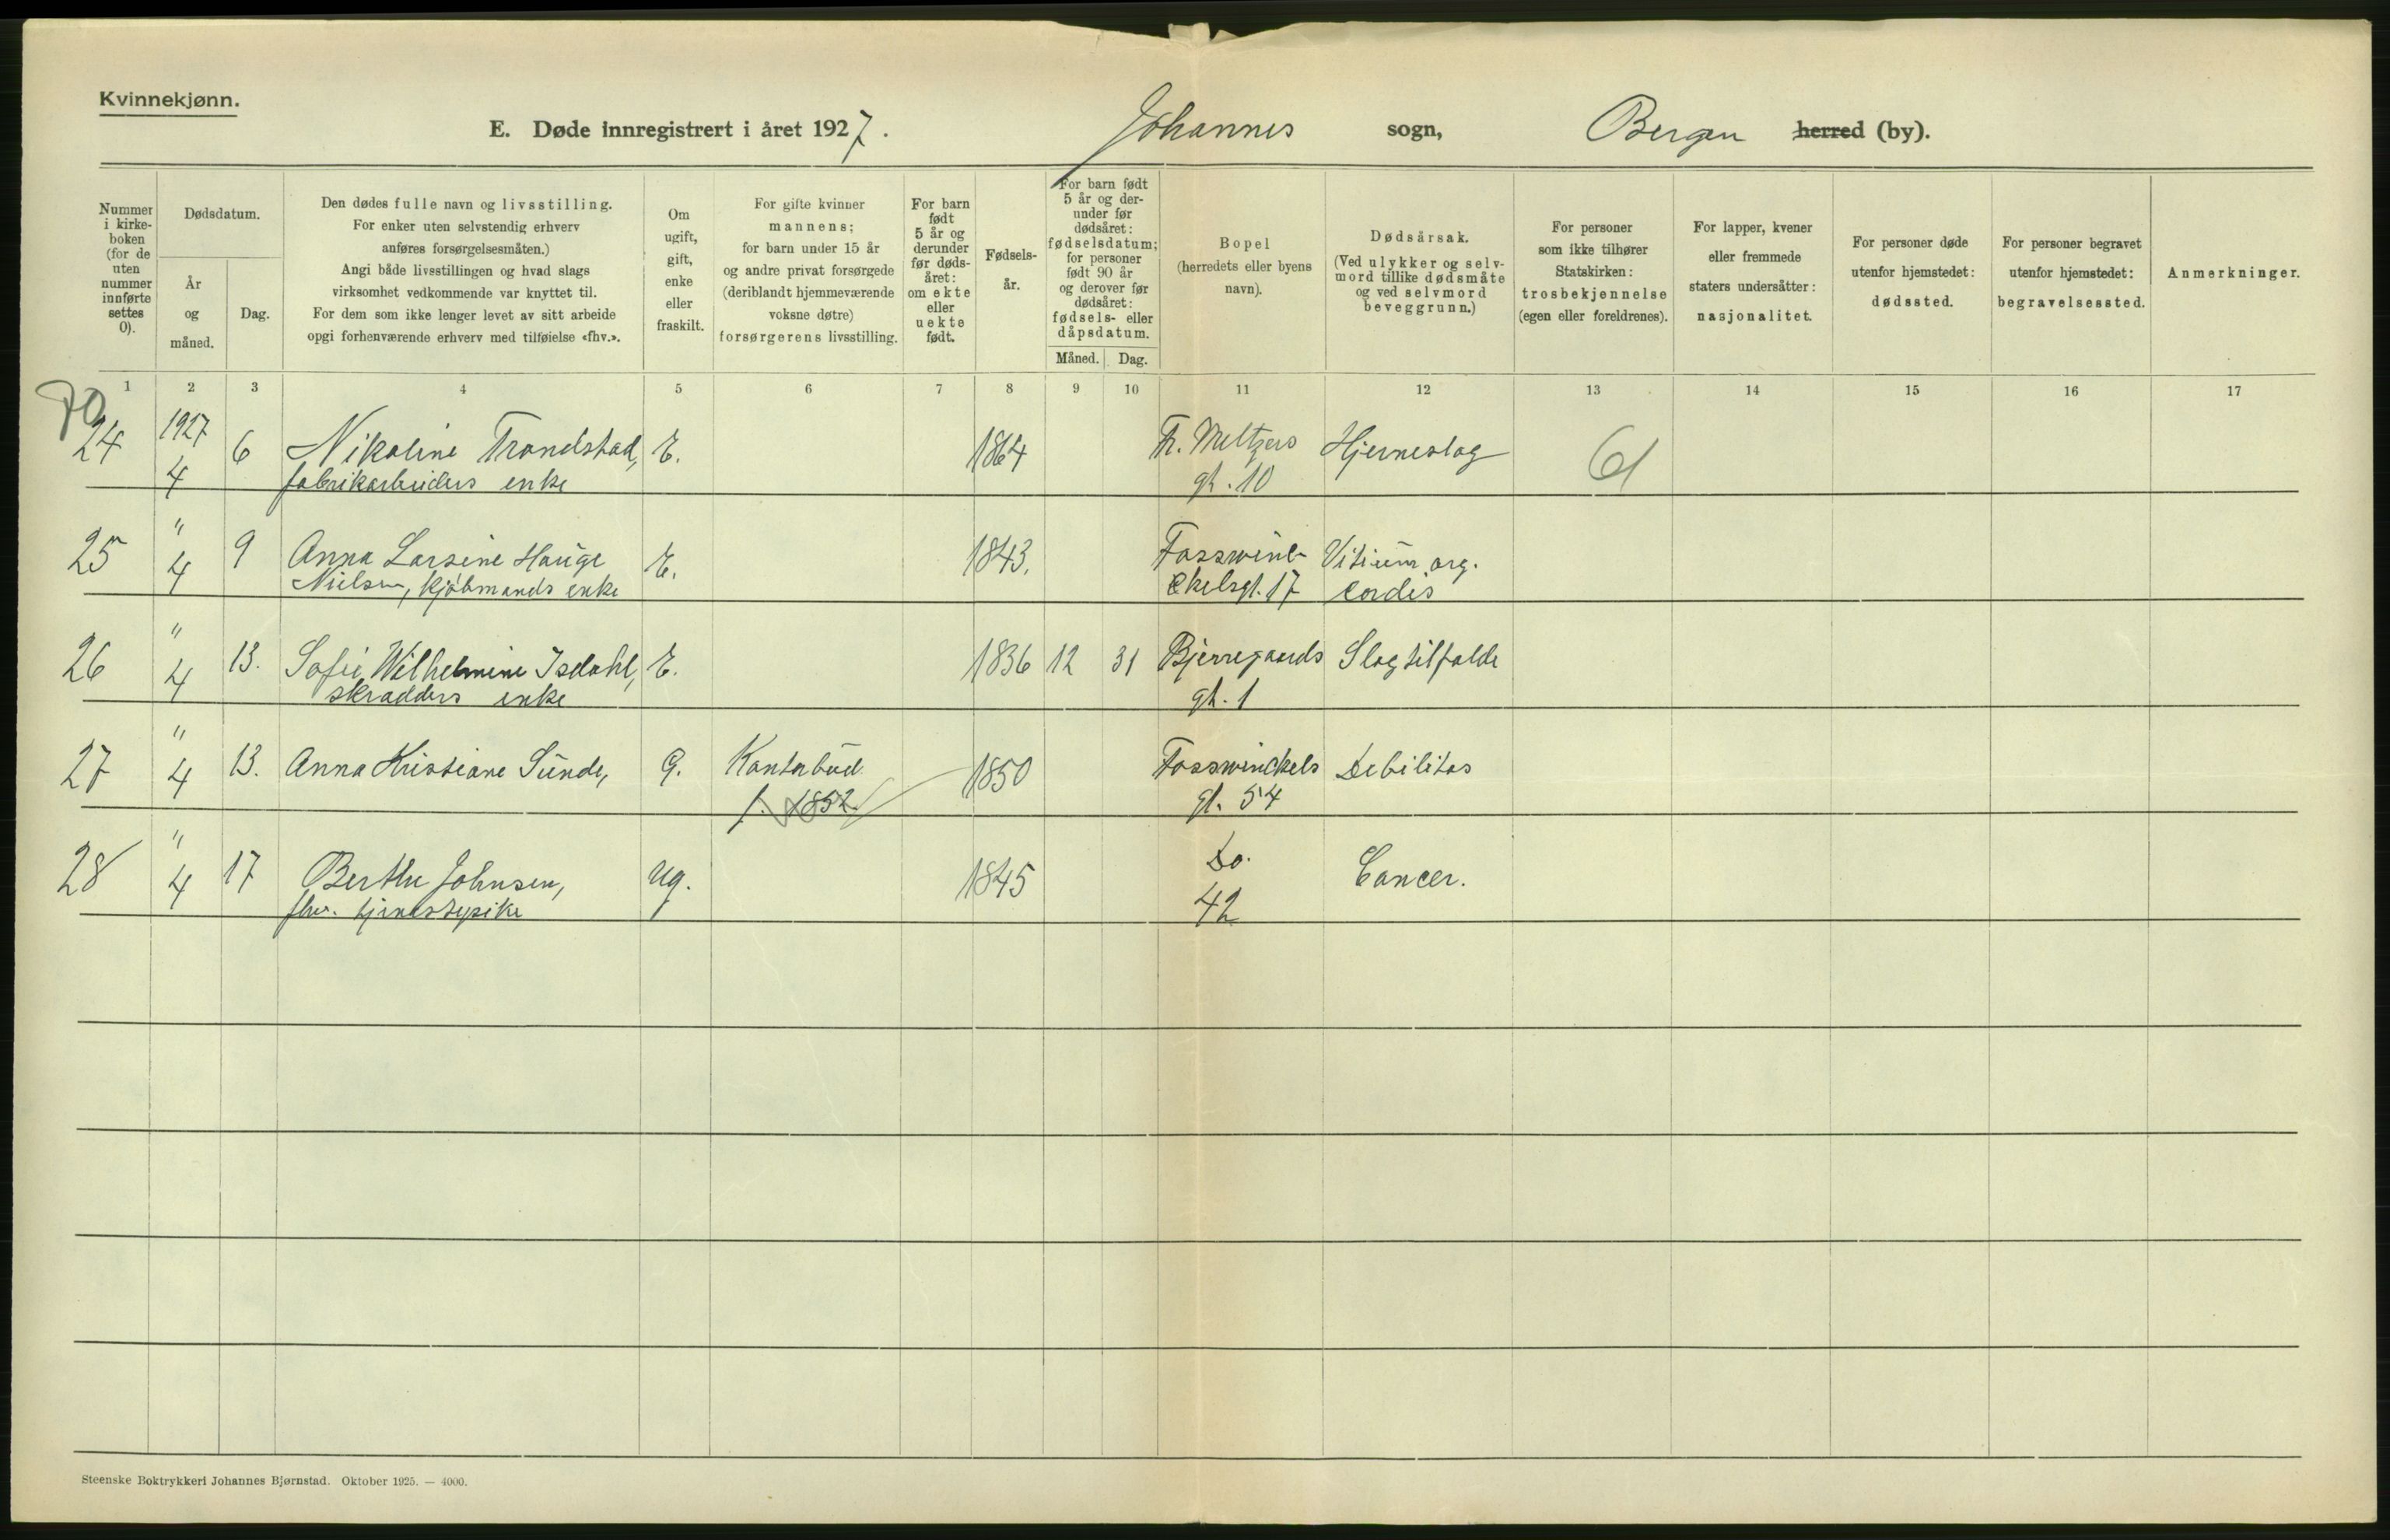 Kvinnekjønn.
E. Døde innregistrert i året 1927. Johannes sogn, Bergen herred (by).
Nummer i kirke- boken (for de uten nummer innførte settes 0).
Dødsdatum.
År og måned.
Dag.
Den dødes fulle navn og livsstilling.
For enker uten selvstendig erhverv
anføres forsørgelsesmåten.)
Angi både livsstillingen og hvad slags
virksomhet vedkommende var knyttet til.
For dem som ikke lenger levet av sitt arbeide
opgi forhenværende erhverv med tilføielse «fhv.».
Om ugift, gift, enke eller fraskilt.
For gifte kvinner
mannens;
for barn under 15 år
og andre privat forsørgede
(deriblandt hjemmeværende
voksne døtre)
forsørgerens livsstilling.
For barn født 5 år og derunder før døds- året: om ekte eller uekte født.
Fødsels- år.
For barn født 5 år og der- under før dødsåret: fødselsdatum; for personer født 90 år og derover før dødsåret: fødsels- eller dåpsdatum.
Måned. Dag.
Bopel
(herredets eller byens
navn).
Dødsårsak.
(Ved ulykker og selv-
mord tillike dødsmåte
og ved selvmord
beveggrunn.)
For personer
som ikke tilhører
Statskirken:
trosbekjennelse
(egen eller foreldrenes).
For lapper, kvener
eller fremmede
staters undersåtter:
nasjonalitet.
For personer døde
utenfor hjemstedet:
dødssted.
For personer begravet
utenfor hjemstedet:
begravelsessted.
Anmerkninger.
1 2 3 4 5 6 7 8 9 10 11 12 13 14 15 16 17
70
24 1927 4 6 Nikoline Trondstad, E. 1864 Fr. Meltzers Hjerneslag
fabrikarbeiders enke gt. 10
25 " 4 9 Anna Larsine Hauge E. 1843. Fosswinc- Vitium org.
Nielsen, kjøbmands enke ckelsgt. 17 cordis
26 " 4 13. Sofie Wilhelmine Isdahl, E. 1836 12 31 Bjerregaards Slagtilfalde
skradders enke gt. 1
27 " 4 13. Anna Kristiane Sunde, G. Kontorbud 1850 Fosswinckels Debilitas
f. 1852. gt. 54
28 " 4 17 Berthe Johnsen, Ug. 1845 Do. Cancer.
fhv. tjenestepike 42
Steenske Boktrykkeri Johannes Bjørnstad. Oktober 1925. — 4000.